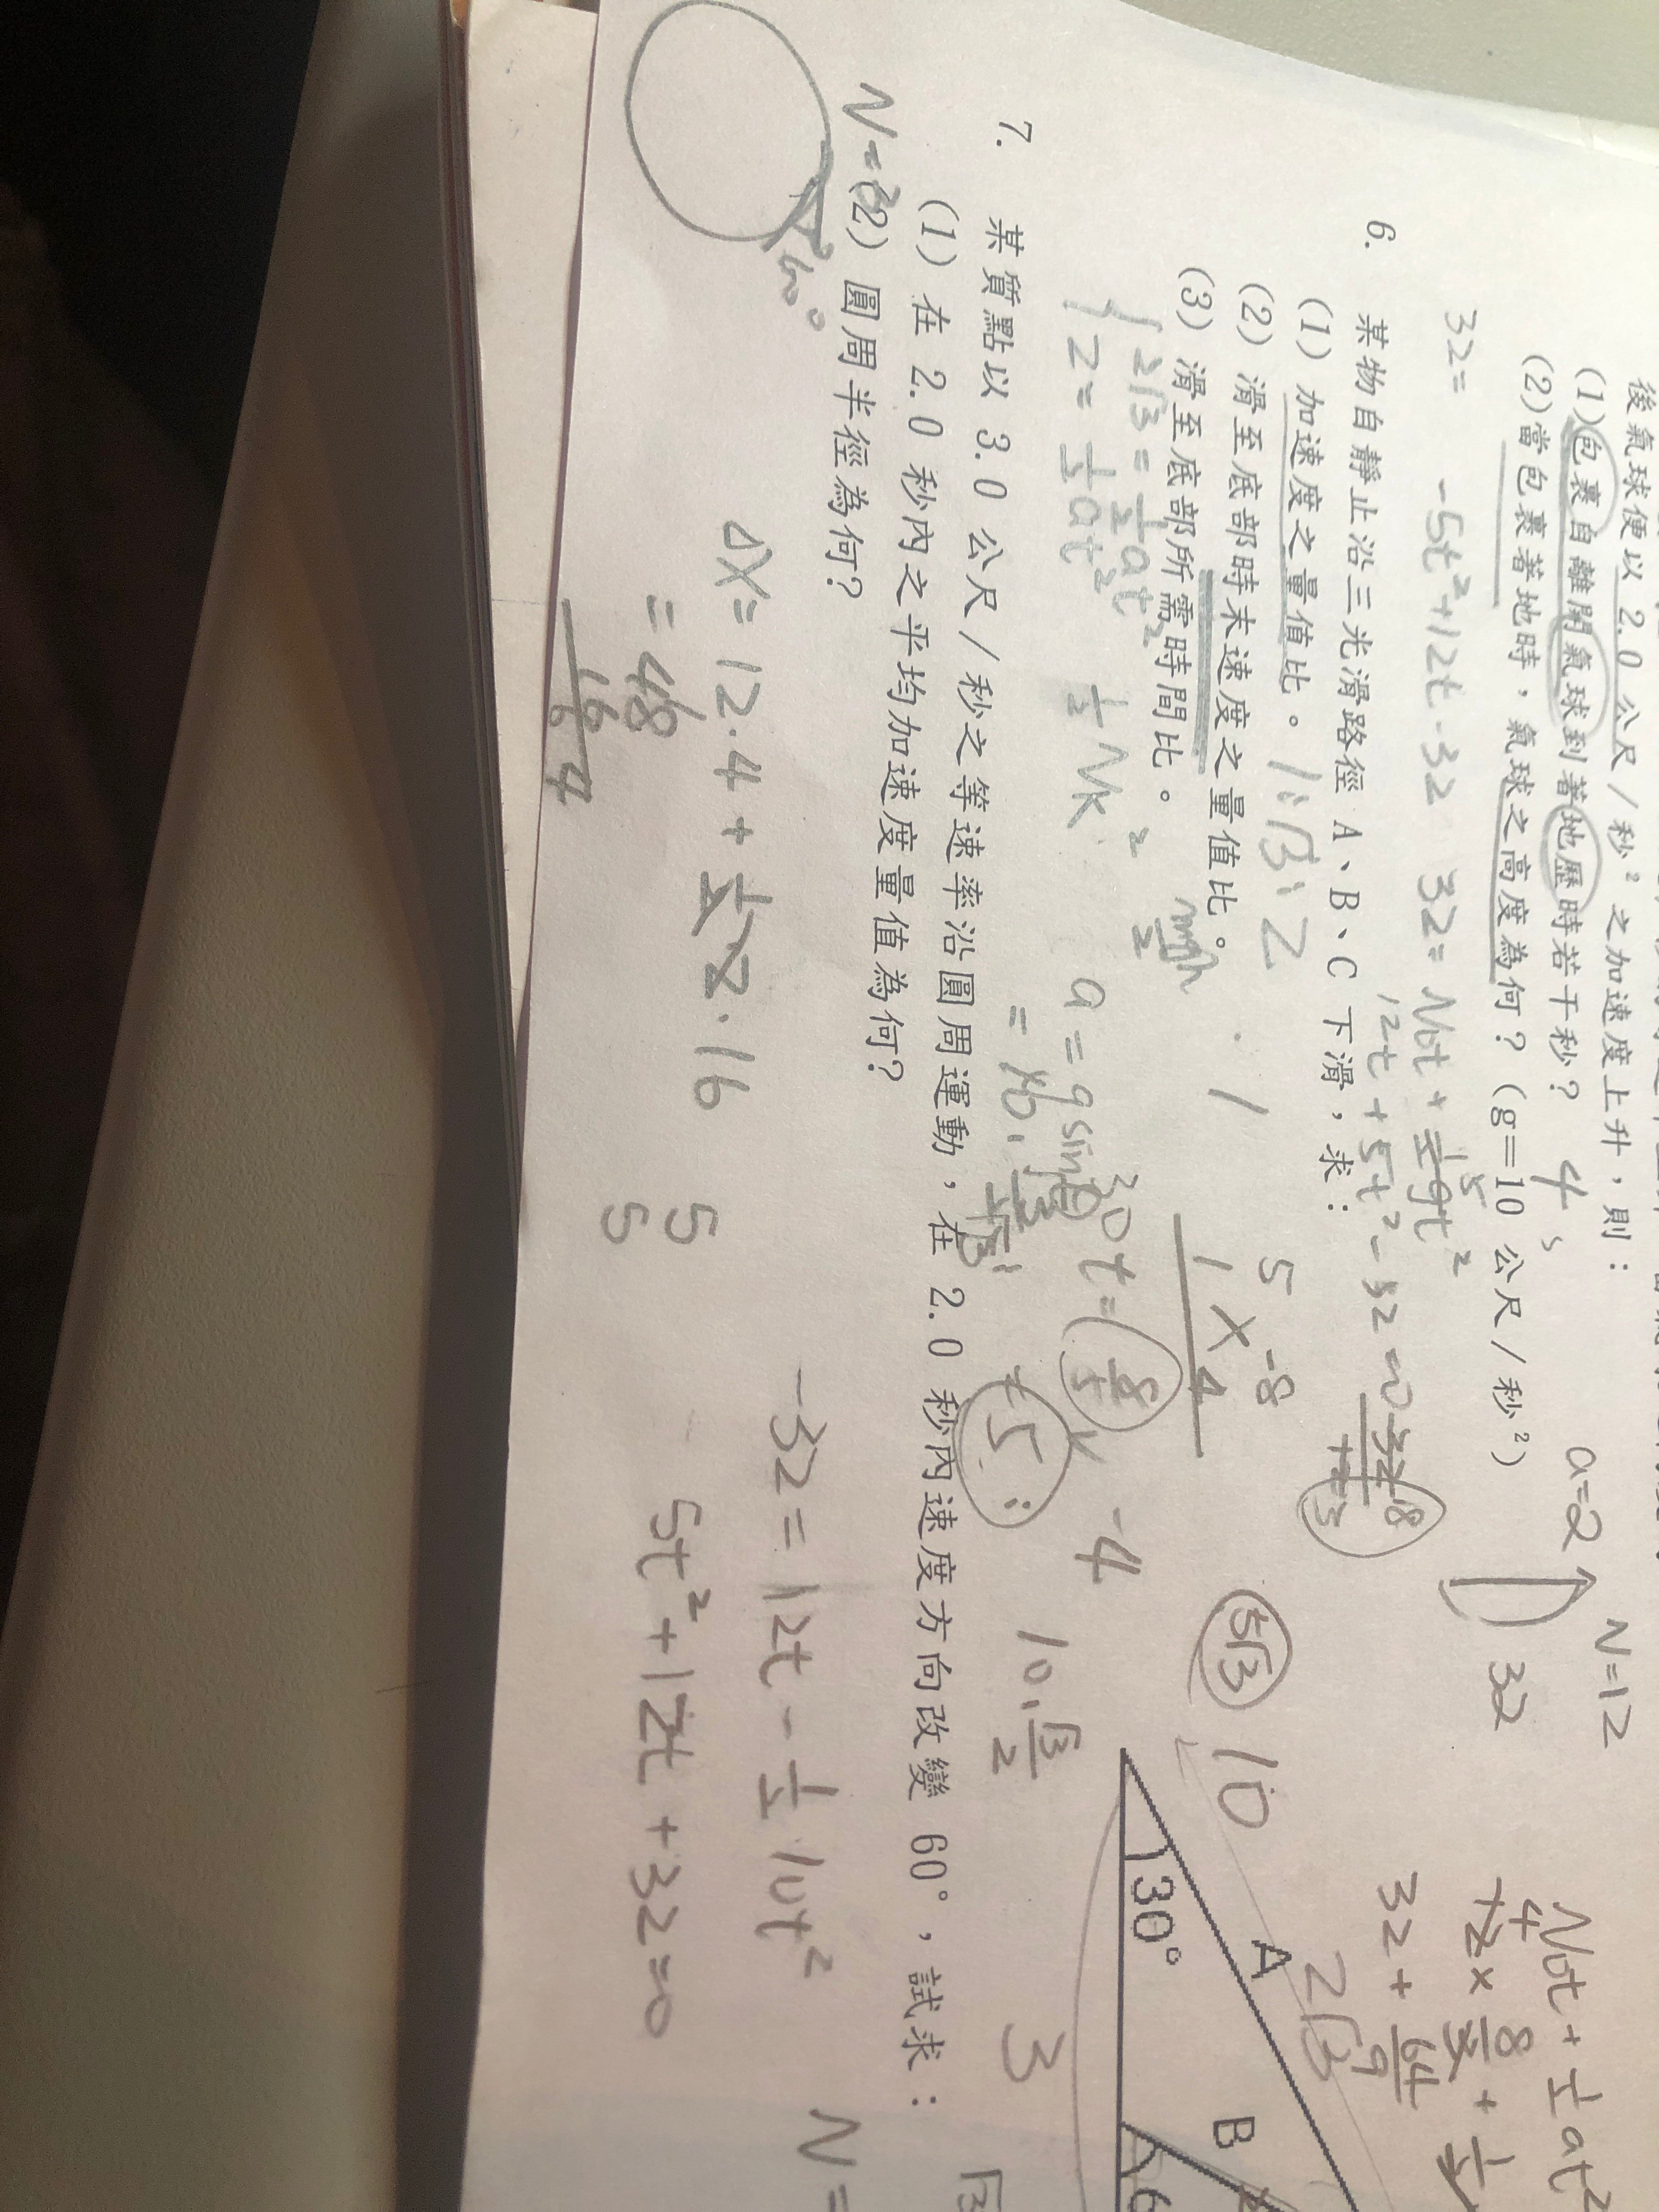 後氣球便以 2.0 公尺/秒² 之加速度上升，則：
(1)包裹自離開氣球到著地歷時若干秒？ 4 s
(2)當包裹著地時，氣球之高度為何？(g=10 公尺/秒²)
a=2
V=12
32
32=
-5t²+12t-32
32= V0t + ½gt²
12t + 5t² - 32 = 0
V0t + ½at²
32 + 64/9
6. 某物自靜止沿三光滑路徑 A、B、C 下滑，求：
(1) 加速度之量值比。 1:√3:2
(2) 滑至底部時末速度之量值比。
(3) 滑至底部所需時間比。
2√3 = ½at²
2 = ½at²
5 -8
1 4
-4
5√3
10
10·√3/2
30°
A
2√3
B
3
7. 某質點以 3.0 公尺/秒之等速率沿圓周運動，在 2.0 秒內速度方向改變 60°，試求：
(1) 在 2.0 秒內之平均加速度量值為何？
(2) 圓周半徑為何？
60°
ΔX = 12·4 + ½·2·16
= 48
16
5
5
-32 = 12t - ½ 10t²
5t² + 12t + 32 = 0
V =